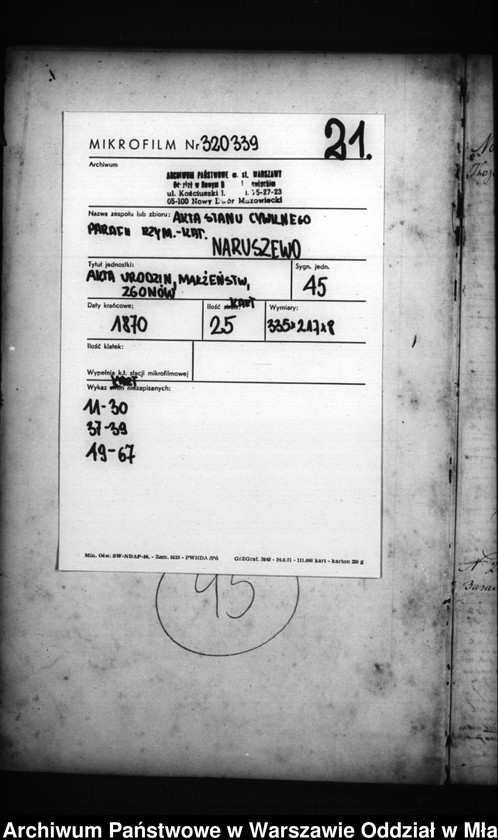 21.
MIKROFILM Nr 320339
Archiwum
ARCHIWUM PAŃSTWOWE m. st. WARSZAWY
ul. Kościuszki 75-27-23
05-100 Nowy Dwór Mazowiecki
Nazwa zespołu lub zbioru: AKTA STANU CYWILNEGO
PARAFII RZYM.-KAT.
NARUSZEWO
Tytuł jednostki:
AKTA URODZIN, MAŁŻEŃSTW,
ZGONÓW
Sygn. jedn.
45
Daty krańcowe:
1870
Ilość KART
25
Wymiary:
335x217x8
Ilość klatek:
Wypełnia k.t. stacji mikrofilmowej
Wykaz KART niezapisanych:
11-30
37-39
19-67
Min. Ośw. SW-NDAP-26. - Zam. 6123 - PWRDA
GrZGraf. - 111.000 kart - karton
45
Archiwum Państwowe w Warszawie Oddział w Mła